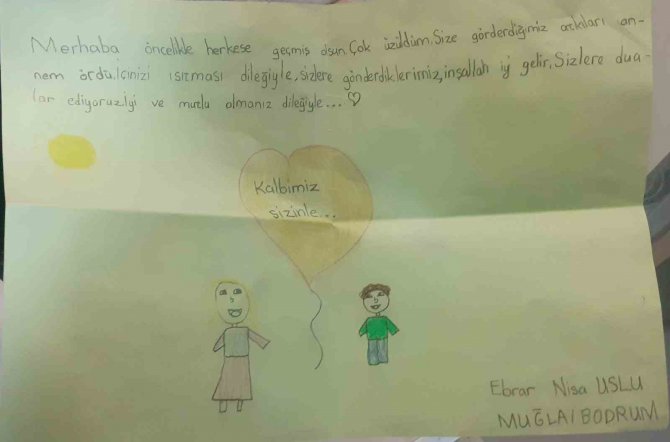 Merhaba öncelikle herkese geçmiş olsun. Çok üzüldüm. Size gönderdiğimiz atkıları an-
nem ördü. İçinizi ısıtması dileğiyle, sizlere gönderdiklerimiz, inşallah iyi gelir, Sizlere dua-
lar ediyoruz. İyi ve mutlu olmanız dileğiyle... ♡
Kalbimiz
sizinle...
Ebrar Nisa USLU
MUĞLA/BODRUM